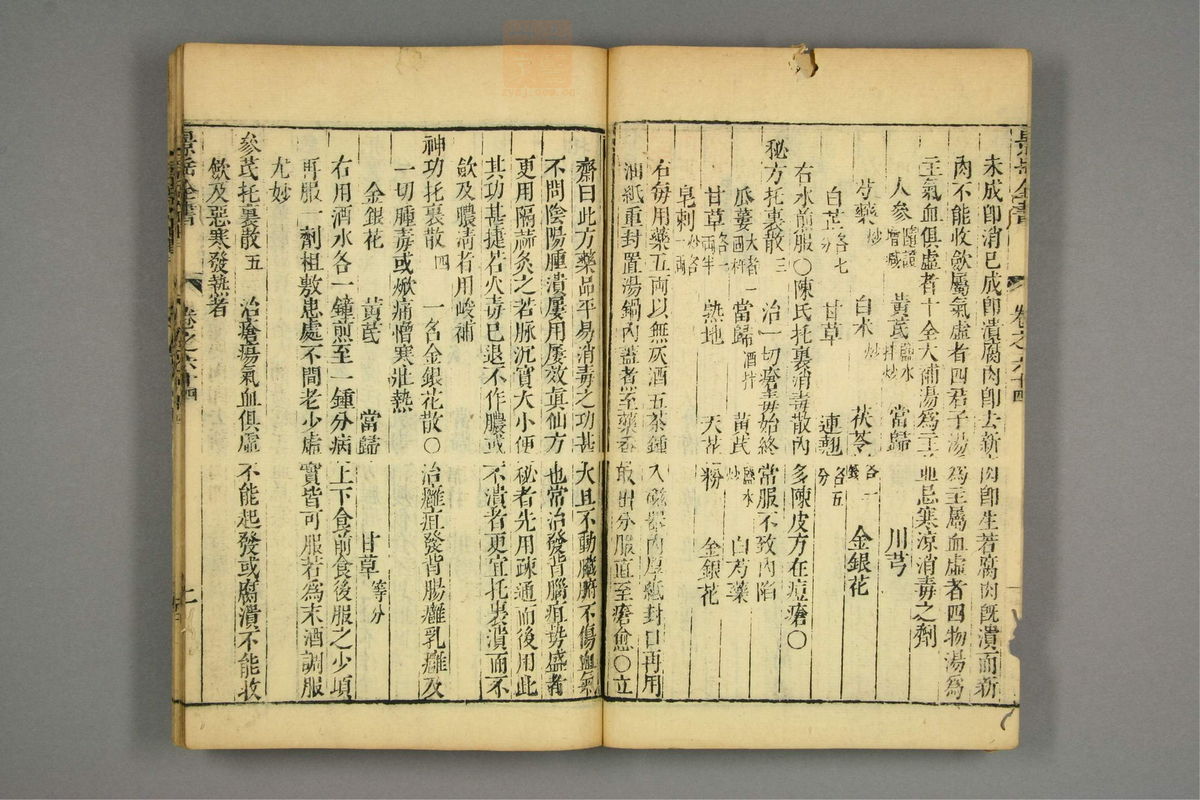 景岳全書
卷之六十四
未成卽消已成卽潰腐肉卽去新肉卽生若腐肉旣潰而新
肉不能收斂屬氣虛者四君子湯爲主屬血虛者四物湯爲
主氣血俱虛者十全大補湯爲主並忌寒涼消毒之劑
人參 黃芪 鹽水拌炒 當歸 川芎
芍藥 炒 白朮 炒 茯苓 各一錢 金銀花
白芷 各七分 甘草 連翹 各五分
右水煎服○陳氏托裏消毒散內多陳皮方在痘瘡○
秘方托裏散 三 治一切瘡毒始終常服不致內陷
瓜蔞 大者一固杵 當歸 酒拌 黃芪 鹽水炒 白芍藥
甘草 各一兩半 熟地 天花粉 金銀花
皂刺 炒各一兩
右每用藥五兩以無灰酒五茶鍾入磁器內厚紙封口再用
油紙重封置湯鍋內蓋煮至藥香取出分服直至瘡愈○立
齋曰此方藥品平易消毒之功甚大且不動臟腑不傷血氣
不問陰陽腫潰屢用屢效眞仙方也常治發背腦疽勢盛者
更用隔蒜灸之若脉沉實大小便秘者先用疎通而後用此
其功甚捷若火毒已退不作膿或不潰者更宜托裏潰而不
歛及膿淸者用峻補
神功托裏散 四 一名金銀花散○治癰疽發背腸癰乳癰及
一切腫毒或焮痛憎寒壯熱
金銀花 黃芪 當歸 甘草 等分
右用酒水各一鐘煎至一鍾分病上下食前食後服之少頃
再服一劑柤敷患處不問老少虛實皆可服若爲末酒調服
尤妙
參芪托裏散 五 治瘡瘍氣血俱虛不能起發或腐潰不能收
歛及惡寒發熱者
景岳全書
卷之六十四